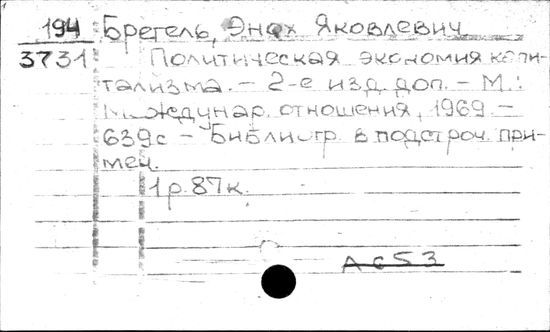 194 Брегель, Энох Яковлевич
3731 Политическая экономия капи-
тализма. – 2-е изд. доп. – М.:
Междунар. отношения, 1969. –
639с – Библиогр. в подстроч. при-
меч.
1р. 87к.
Ас53